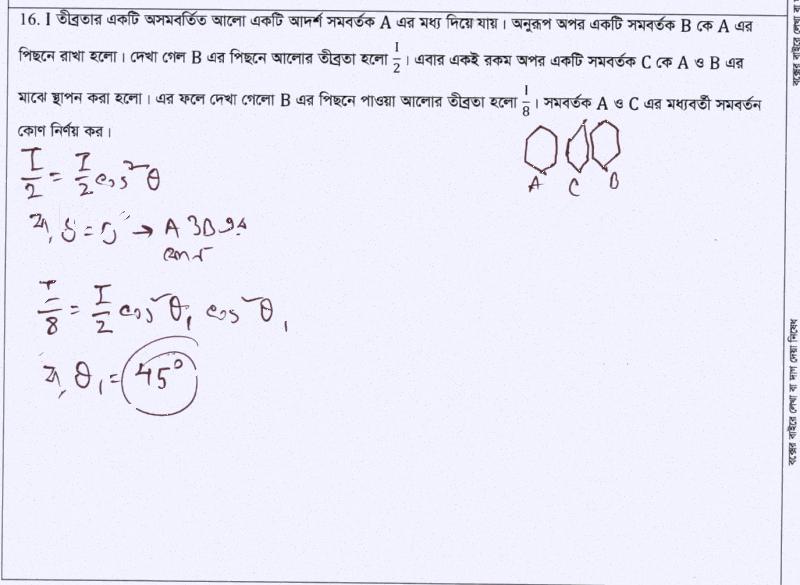 16. I তীব্রতার একটি অসমবর্তিত আলো একটি আদর্শ সমবর্তক A এর মধ্য দিয়ে যায়। অনুরূপ অপর একটি সমবর্তক B কে A এর
পিছনে রাখা হলো। দেখা গেল B এর পিছনে আলোর তীব্রতা হলো I/2। এবার একই রকম অপর একটি সমবর্তক C কে A ও B এর
মাঝে স্থাপন করা হলো। এর ফলে দেখা গেলো B এর পিছনে পাওয়া আলোর তীব্রতা হলো I/8। সমবর্তক A ও C এর মধ্যবর্তী সমবর্তন
কোণ নির্ণয় কর।
A C B
I/2 = I/2 cos²θ
→ A ও B এর
I/8 = I/2 cos²θ₁ cos²θ₁
বা, θ₁ = 45°
বক্সের বাইরে লেখা বা দাগ দেয়া নিষেধ